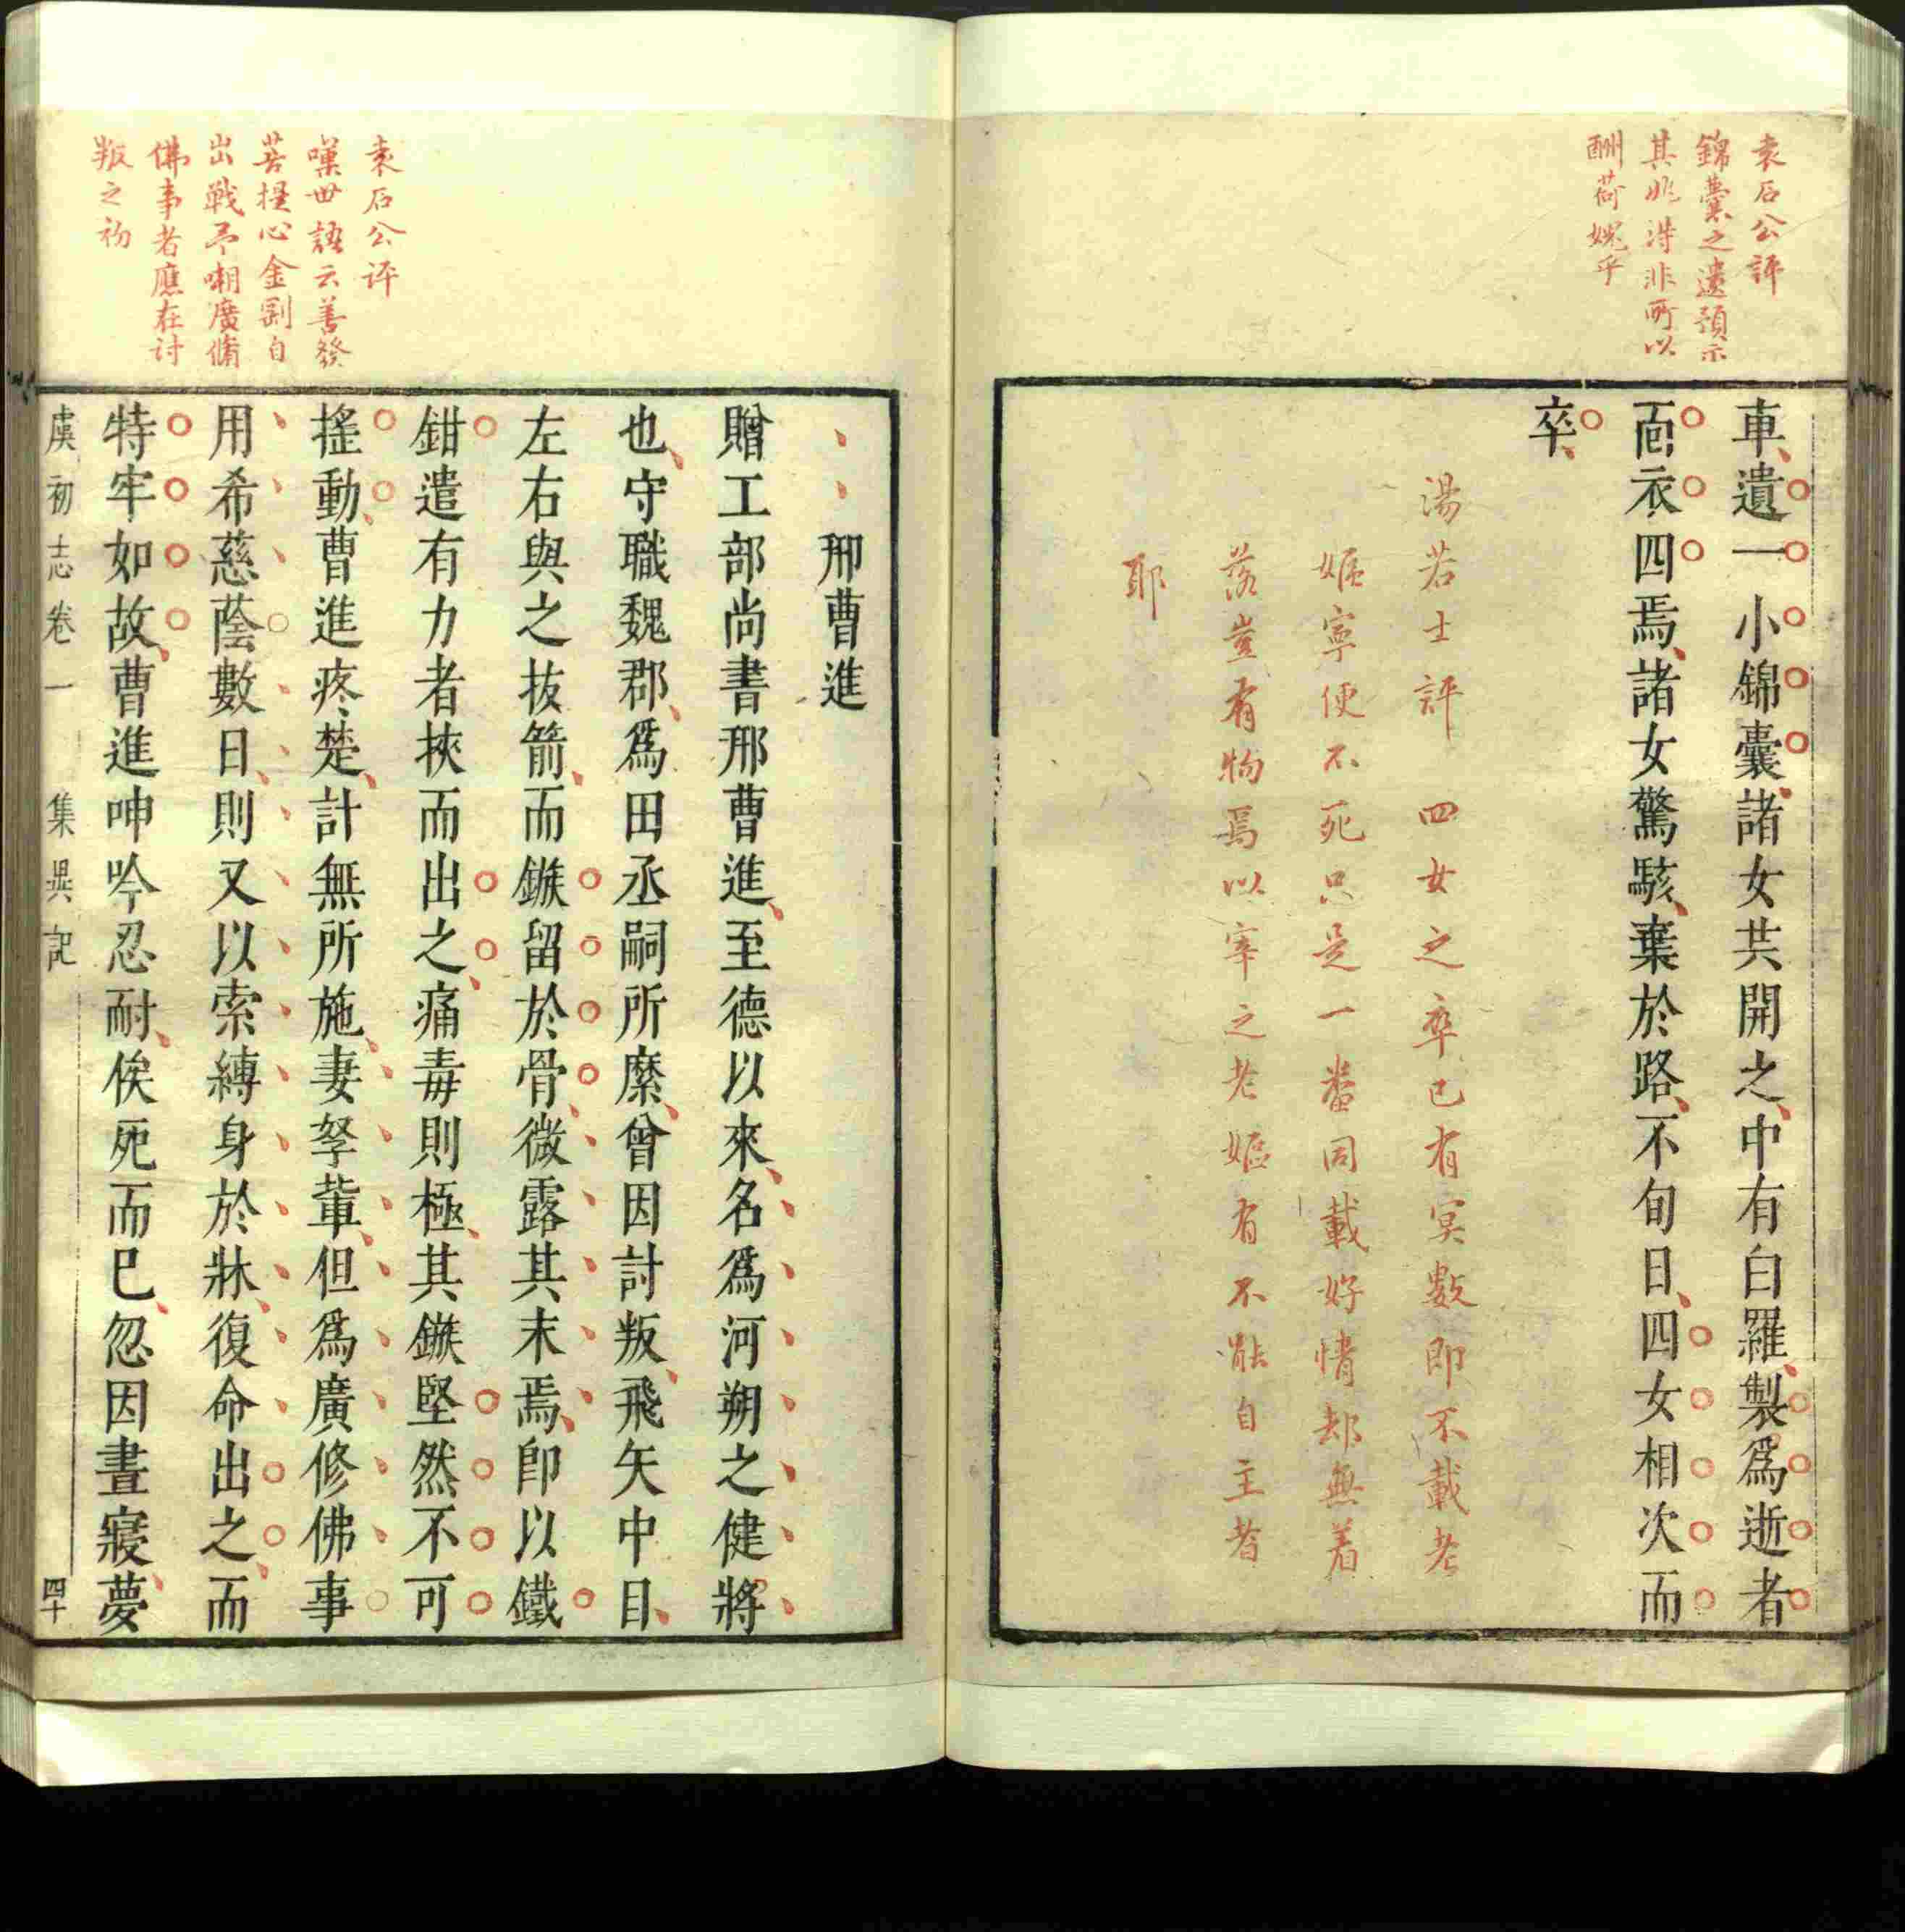 袁石公評
錦囊之遺預示
其兆得非所以
酬荷媿乎
車遺一小錦囊諸女共開之中有白羅製爲逝者
面衣四焉諸女驚駭棄於路不旬日四女相次而
卒
湯若士評　四女之卒已有冥數即不載老
嫗寧便不死只是一輩同載好情却無着
落豈有物焉以宰之老嫗有不能自主者
耶
袁石公評
嘆世語云善發
菩提心金剛自
出戰予嘲廣脩
佛事者應在討
叛之初
邢曹進
贈工部尚書邢曹進至德以來名爲河朔之健將
也守職魏郡爲田丞嗣所縻曾因討叛飛矢中目
左右與之拔箭而鏃留於骨微露其末焉卽以鐵
鉗遣有力者挾而出之痛毒則極其鏃堅然不可
搖動曹進疼楚計無所施妻孥輩但爲廣修佛事
用希慈蔭數日則又以索縛身於牀復命出之而
特牢如故曹進呻吟忍耐俟死而已忽因晝寢夢
虞初志卷一　集異記　四十